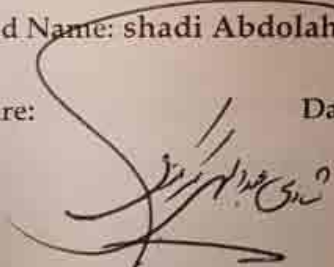 d Name: shadi Abdolah
re: Da
شادی عبداللهی